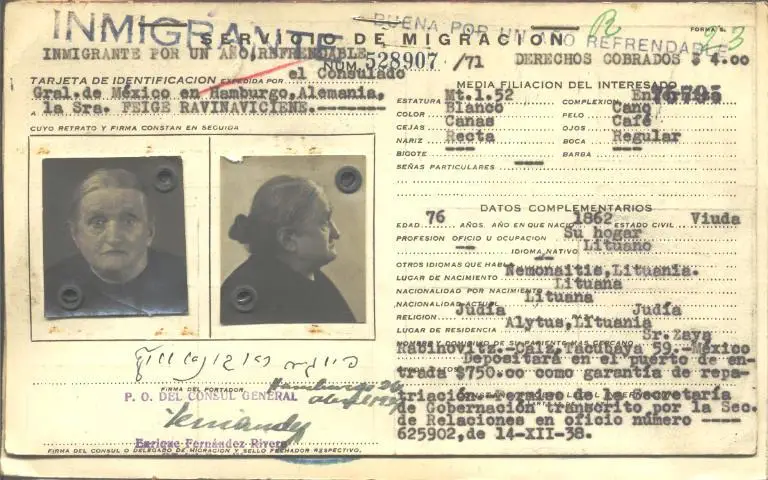 INMIGRANTE
BUENA POR UN AÑO REFRENDABLE
R
23
FORMA 5.
SERVICIO DE MIGRACION
INMIGRANTE POR UN AÑO, REFRENDABLE
NUM. 528907 /71 DERECHOS COBRADOS $ 4.00
TARJETA DE IDENTIFICACION EXPEDIDA POR el Consulado
Gral. de México en Hamburgo, Alemania,
A la Sra. FEIGE RAVINAVICIENE.-------
CUYO RETRATO Y FIRMA CONSTAN EN SEGUIDA
FIRMA DEL PORTADOR
Hamburgo 26
P. O. DEL CONSUL GENERAL
Fernández
Enrique Fernández Rivera
FIRMA DEL CONSUL O DELEGADO DE MIGRACION Y SELLO FECHADOR RESPECTIVO.
MEDIA FILIACION DEL INTERESADO
ESTATURA Mt.1.52 COMPLEXION
76795
COLOR Blanco PELO Cano
CEJAS Canas OJOS Café
NARIZ Recta BOCA Regular
BIGOTE --- BARBA ---
SEÑAS PARTICULARES ---
DATOS COMPLEMENTARIOS
EDAD 76 AÑOS. AÑO EN QUE NACIO 1862 ESTADO CIVIL Viuda
PROFESION OFICIO U OCUPACION Su hogar
IDIOMA NATIVO Lituano
OTROS IDIOMAS QUE HABLA --
LUGAR DE NACIMIENTO Nemonaitis, Lituania.
NACIONALIDAD POR NACIMIENTO Lituana
NACIONALIDAD ACTUAL Lituana
RELIGION Judía RAZA Judía
LUGAR DE RESIDENCIA Alytus, Lituania
NOMBRE Y DOMICILIO DE SU PARIENTE MAS CERCANO Sr. Zaya
Rabinovitz.-Caiz, Tacubaya 59.-México
Depositará en el puerto de en-
trada $750.oo como garantía de repa-
triación.-Permiso de la Secretaría
de Gobernación transcrito por la Sec.
de Relaciones en oficio número ----
625902, de 14-XII-38.